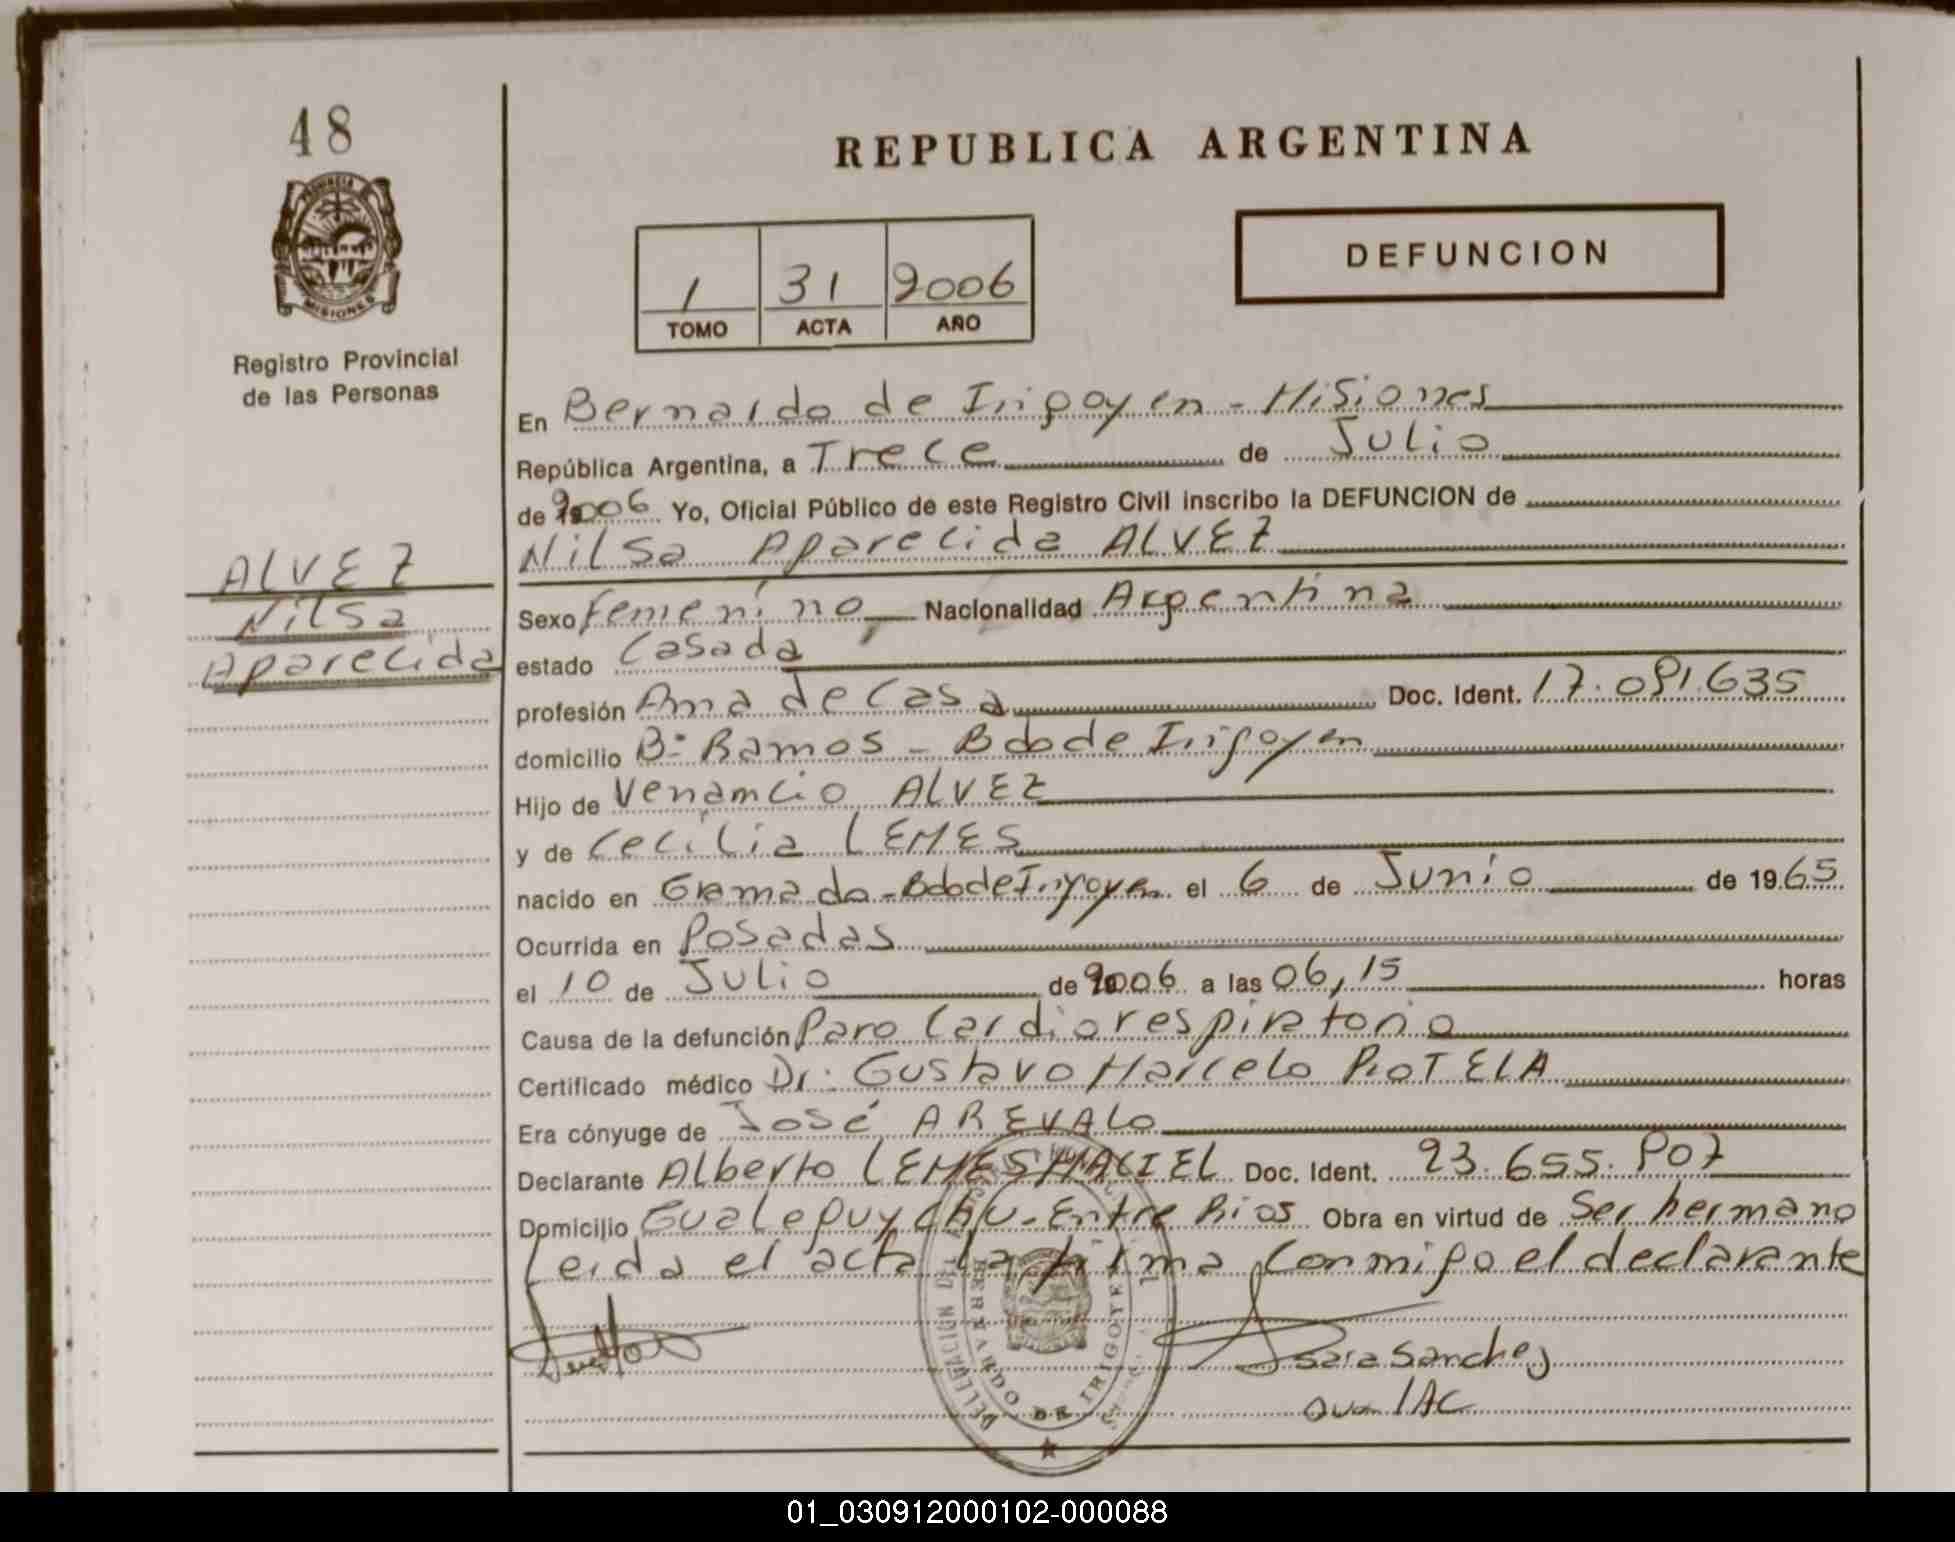 48
PROVINCIA DE
MISIONES
Registro Provincial
de las Personas
ALVEZ
Nilsa
Aparecida
REPUBLICA ARGENTINA
DEFUNCION
1 31 2006
TOMO ACTA AÑO
En Bernardo de Irigoyen - Misiones
República Argentina, a Trece de Julio
de 2006 Yo, Oficial Público de este Registro Civil inscribo la DEFUNCION de
Nilsa Aparecida ALVEZ
Sexo femenino Nacionalidad Argentina
estado Casada
profesión Ama de Casa Doc. Ident. 17.091.635
domicilio Bº Ramos - Bdo de Irigoyen
Hijo de Venamcio ALVEZ
y de Cecilia LEMES
nacido en Gramado - Bdo de Irigoyen el 6 de Junio de 1965
Ocurrida en Posadas
el 10 de Julio de 2006 a las 06,15 horas
Causa de la defunción Paro Cardiorespiratorio
Certificado médico Dr. Gustavo Marcelo
Era cónyuge de José AREVALO
Declarante Alberto LEMES MACIEL Doc. Ident. 23.655.907
Domicilio Gualeguychu - Entre Rios Obra en virtud de Ser hermano
Leida el acta la firma conmigo el declarante
Sara Sanchez
DELEGACION DEL
BERNARDO DE IRIGOYEN
01_030912000102-000088